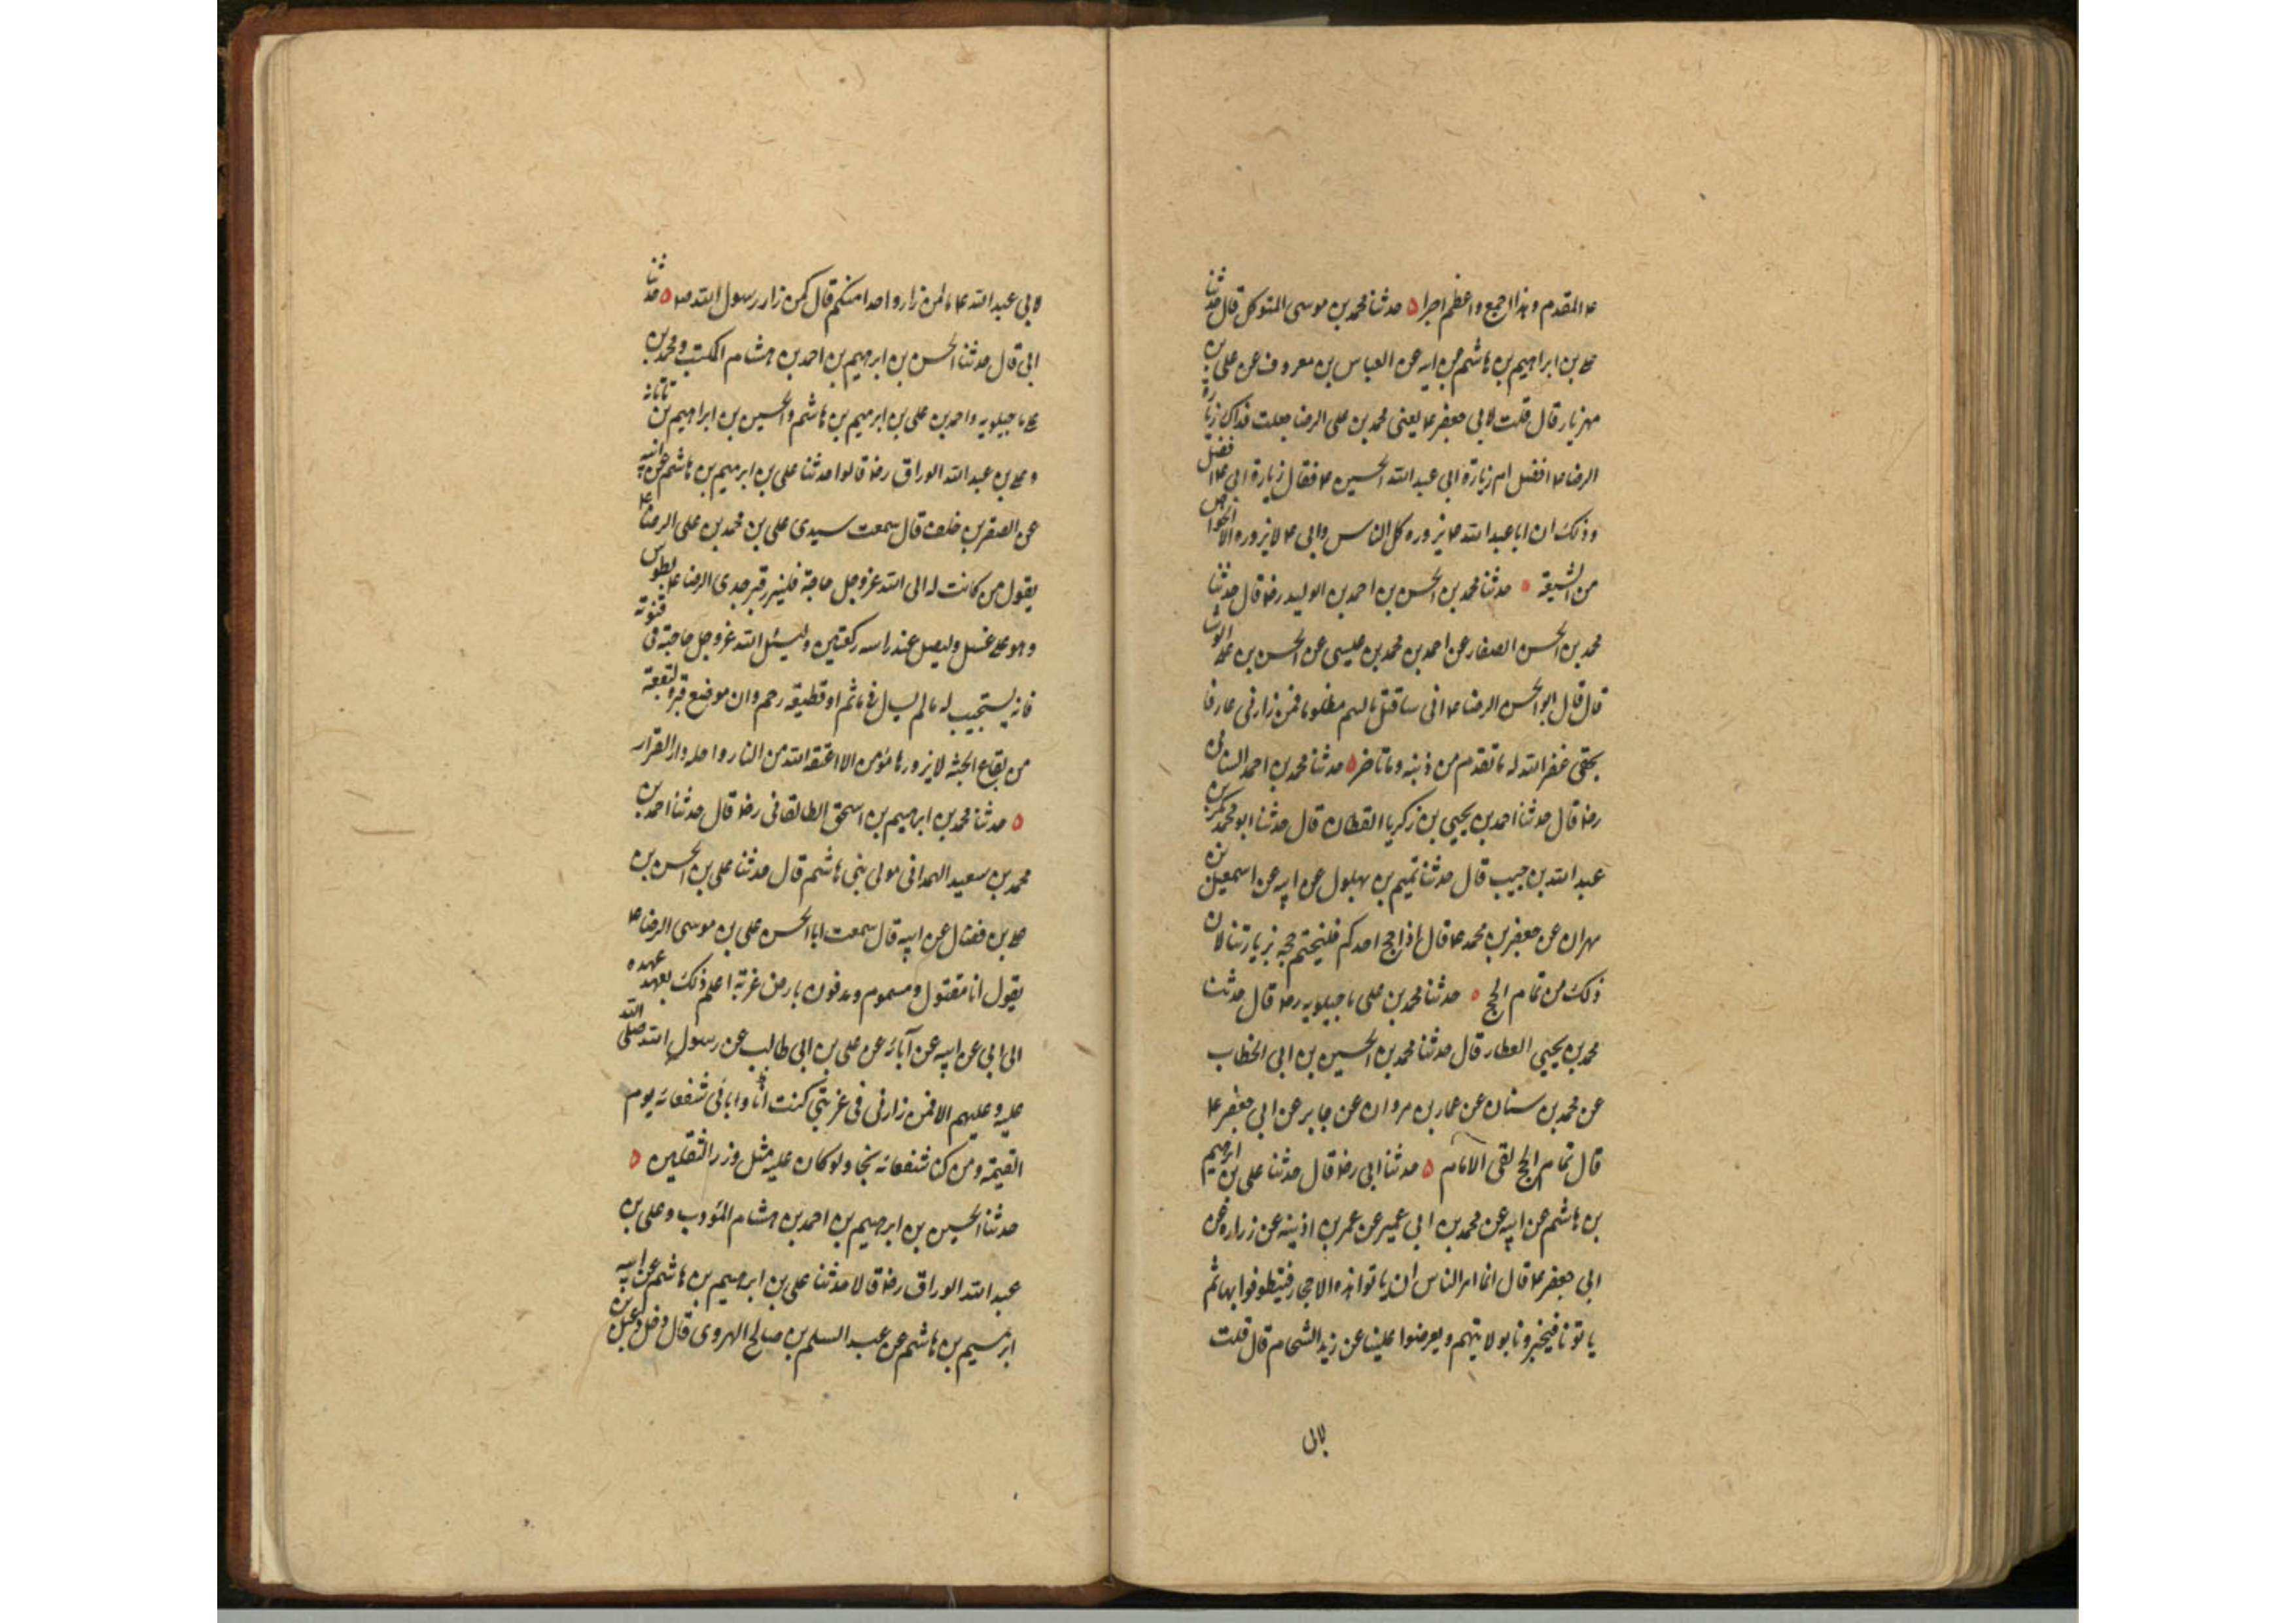 ع المقدم وبذا الجمع واعظم اجرا ٥ حدثنا محمد بن موسى المتوكل قال حدثنا
على بن ابراهيم بن هاشم عن ابيه عن العباس بن معروف عن على بن
مهزيار قال قلت لابى جعفر ع يعنى محمد بن على الرضا جعلت فداك زيارة
الرضا ع افضل ام زيارة ابى عبد الله الحسين ع فقال زيارة ابى ع افضل
وذلك ان ابا عبد الله ع يزوره كل الناس وابى ع لا يزوره الا الخواص
من الشيعة ٥ حدثنا محمد بن الحسن بن احمد بن الوليد رض قال حدثنا
محمد بن الحسن الصفار عن احمد بن محمد بن عيسى عن الحسن بن على الوشا
قال قال ابو الحسن الرضا ع انى ساقتل بالسم مظلوما فمن زارنى عارفا
بحقى غفر الله له ما تقدم من ذنبه وما تاخر ٥ حدثنا محمد بن احمد السنانى
رض قال حدثنا احمد بن يحيى بن زكريا القطان قال حدثنا ابو محمد بكر بن
عبد الله بن حبيب قال حدثنا تميم بن بهلول عن ابيه عن اسمعيل بن
مهران عن جعفر بن محمد ع قال اذا حج احدكم فليختم حجه بزيارتنا لان
ذلك من تمام الحج ٥ حدثنا محمد بن على ماجيلويه رض قال حدثنا
محمد بن يحيى العطار قال حدثنا محمد بن الحسين بن ابى الخطاب
عن محمد بن سنان عن عمار بن مروان عن جابر عن ابى جعفر ع
قال تمام الحج لقى الامام ٥ حدثنا ابى رض قال حدثنا على بن ابرهيم
بن هاشم عن ابيه عن محمد بن ابى عمير عن عمر بن اذينه عن زراره عن
ابى جعفر ع قال انما امر الناس ان ياتوا هذه الاحجار فيطوفوا بها ثم
ياتونا فيخبرونا بولايتهم ويعرضوا علينا عن زيد الشحام قال قلت
لابى عبد الله ع ما لمن زار واحدا منكم قال كمن زار رسول الله ص ٥ حدثنا
ابى قال حدثنا الحسن بن ابرهيم بن احمد بن هشام المكتب ومحمد بن
على ماجيلويه واحمد بن على بن ابرهيم بن هاشم والحسين بن ابراهيم بن تاتانه
وعلى بن عبد الله الوراق رض قالوا حدثنا على بن ابرهيم بن هاشم عن ابيه
عن الصقر بن خلف قال سمعت سيدى على بن محمد بن على الرضا ع
يقول من كانت له الى الله عز وجل حاجة فليزر قبر جدى الرضا ع بطوس
وهو على غسل وليصل عند راسه ركعتين وليسئل الله عز وجل حاجته فى قنوته
فانه يستجيب له ما لم يسال فى ماثم او قطيعة رحم وان موضع قبره لبقعة
من بقاع الجنه لا يزورها مؤمن الا اعتقه الله من النار واحله دار القرار
٥ حدثنا محمد بن ابرهيم بن اسحق الطالقانى رض قال حدثنا احمد بن
محمد بن سعيد الهمدانى مولى بنى هاشم قال حدثنا على بن الحسن بن
على بن فضال عن ابيه قال سمعت ابا الحسن على بن موسى الرضا ع
يقول انا مقتول ومسموم ومدفون بارض غربة اعلم ذلك بعهد عهده
الى ابى عن ابيه عن آبائه عن على بن ابى طالب عن رسول الله صلى الله
عليه وعليهم الا فمن زارنى فى غربتى كنت انا وابائى شفعائه يوم
القيمة ومن كنا شفعائه نجا ولو كان عليه مثل وزر الثقلين ٥
حدثنا الحسين بن ابرهيم بن احمد بن هشام المؤدب وعلى بن
عبد الله الوراق رض قالا حدثنا على بن ابرهيم بن هاشم عن ابيه
ابرهيم بن هاشم عن عبد السلم بن صالح الهروى قال دخل دعبل بن